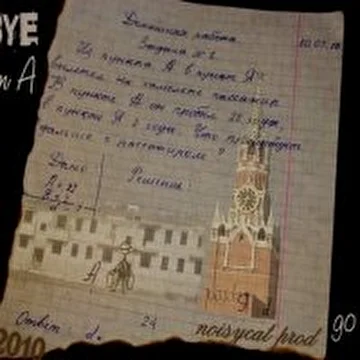 BYE
n A
Домашняя работа
Задача № 2
10.
Из пункта А в пункт Я
вылетел на самолете пассажир
В пункте
он пробыл 22 года,
в пункте Я 2 года. Что
дальше с пассажиром?
Дано
Решение:
А
Я
d
Ответ: d.
24
noisycat prod
go
2010